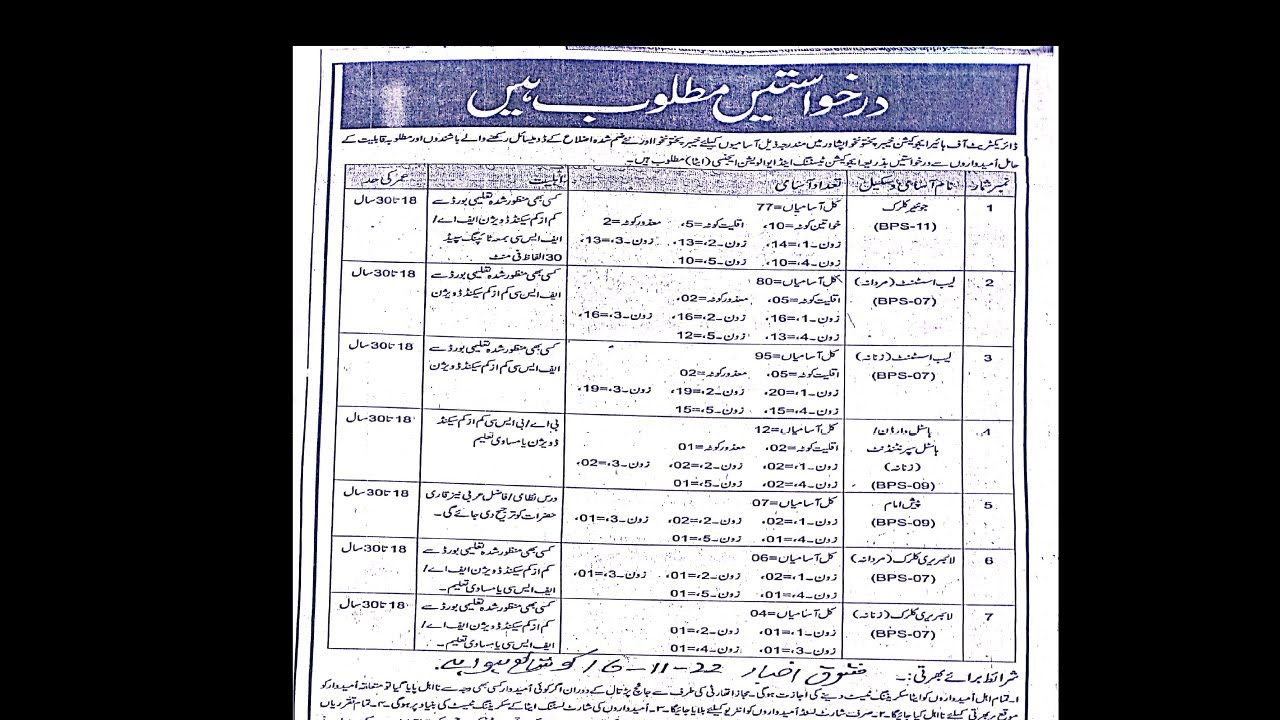 opportunity employer and females are encouraged to apply.
درخواستیں مطلوب ہیں
ڈائریکٹریٹ آف ہائیر ایجوکیشن خیبر پختونخوا پشاور میں مندرجہ ذیل آسامیوں کیلئے خیبر پختونخوا اور نئے ضم شدہ اضلاع کے ڈومیسائل رکھنے والے باشندوں اور مطلوبہ قابلیت کے
حامل اُمیدواروں سے درخواستیں بذریعہ ایجوکیشن ٹیسٹنگ اینڈ ایولوایشن ایجنسی (ایٹا) مطلوب ہیں۔
نمبر شمار نام آسامی و سکیل تعداد آسامی اہلیت عمر کی حد
1 جونیئر کلرک کل آسامیاں=77 کسی بھی منظور شدہ تعلیمی بورڈ سے 18 تا 30 سال
(BPS-11) خواتین کوٹہ=10، اقلیت کوٹہ=5، معذور کوٹہ=2 کم از کم سیکنڈ ڈویژن ایف اے/
زون۔1=14، زون۔2=13، زون۔3=13، ایف ایس سی بمعہ ٹائپنگ سپیڈ
زون۔4=10، زون۔5=10 30 الفاظ فی منٹ
2 لیب اسسٹنٹ (مردانہ) کل آسامیاں=80 کسی بھی منظور شدہ تعلیمی بورڈ سے 18 تا 30 سال
(BPS-07) اقلیت کوٹہ=05، معذور کوٹہ=02 ایف ایس سی کم از کم سیکنڈ ڈویژن
زون۔1=16، زون۔2=16، زون۔3=16،
زون۔4=13، زون۔5=12
3 لیب اسسٹنٹ (زنانہ) کل آسامیاں=95 کسی بھی منظور شدہ تعلیمی بورڈ سے 18 تا 30 سال
(BPS-07) اقلیت کوٹہ=05، معذور کوٹہ=02 ایف ایس سی کم از کم سیکنڈ ڈویژن
زون۔1=20، زون۔2=19، زون۔3=19،
زون۔4=15، زون۔5=15
4 ہاسٹل وارڈن/ کل آسامیاں=12 بی اے/بی ایس سی کم از کم سیکنڈ 18 تا 30 سال
ہاسٹل سپرنٹنڈنٹ اقلیت کوٹہ=02، معذور کوٹہ=01 ڈویژن یا مساوی تعلیم
(زنانہ) زون۔1=02، زون۔2=02، زون۔3=02،
(BPS-09) زون۔4=02، زون۔5=01
5 پیش امام کل آسامیاں=07 درس نظامی/فاضل عربی نیز قاری 18 تا 30 سال
(BPS-09) زون۔1=02، زون۔2=02، زون۔3=01، حضرات کو ترجیح دی جائے گی۔
زون۔4=01، زون۔5=01
6 لائبریری کلرک (مردانہ) کل آسامیاں=06 کسی بھی منظور شدہ تعلیمی بورڈ سے 18 تا 30 سال
(BPS-07) زون۔1=02، زون۔2=01، زون۔3=01، کم از کم سیکنڈ ڈویژن ایف اے/
زون۔4=01، زون۔5=01 ایف ایس سی یا مساوی تعلیم۔
7 لائبریری کلرک (زنانہ) کل آسامیاں=04 کسی بھی منظور شدہ تعلیمی بورڈ سے 18 تا 30 سال
(BPS-07) زون۔1=01، زون۔2=01 کم از کم سیکنڈ ڈویژن ایف اے/
زون۔3=01، زون۔4=01 ایف ایس سی یا مساوی تعلیم۔
شرائط برائے بھرتی:۔ اخبار 16-11-22 کو شائع ہوا ہے۔
۱۔ تمام اہل اُمیدواروں کو ایٹا سکریننگ ٹیسٹ دینے کی اجازت ہوگی۔ مجاز اتھارٹی کی طرف سے جانچ پڑتال کے دوران اگر کوئی اُمیدوار کسی بھی وجہ سے نااہل پایا گیا تو متعلقہ اُمیدوار کو
موقع پر بھرتی کیلئے نااہل کیا جائیگا۔ ۲۔ صرف شارٹ لسٹڈ اُمیدواروں کو انٹرویو کیلئے بلایا جائیگا۔ ۳۔ اُمیدواروں کی شارٹ لسٹنگ ایٹا کے سکریننگ ٹیسٹ کی بنیاد پر ہوگی۔ ۴۔ تمام تقرریاں